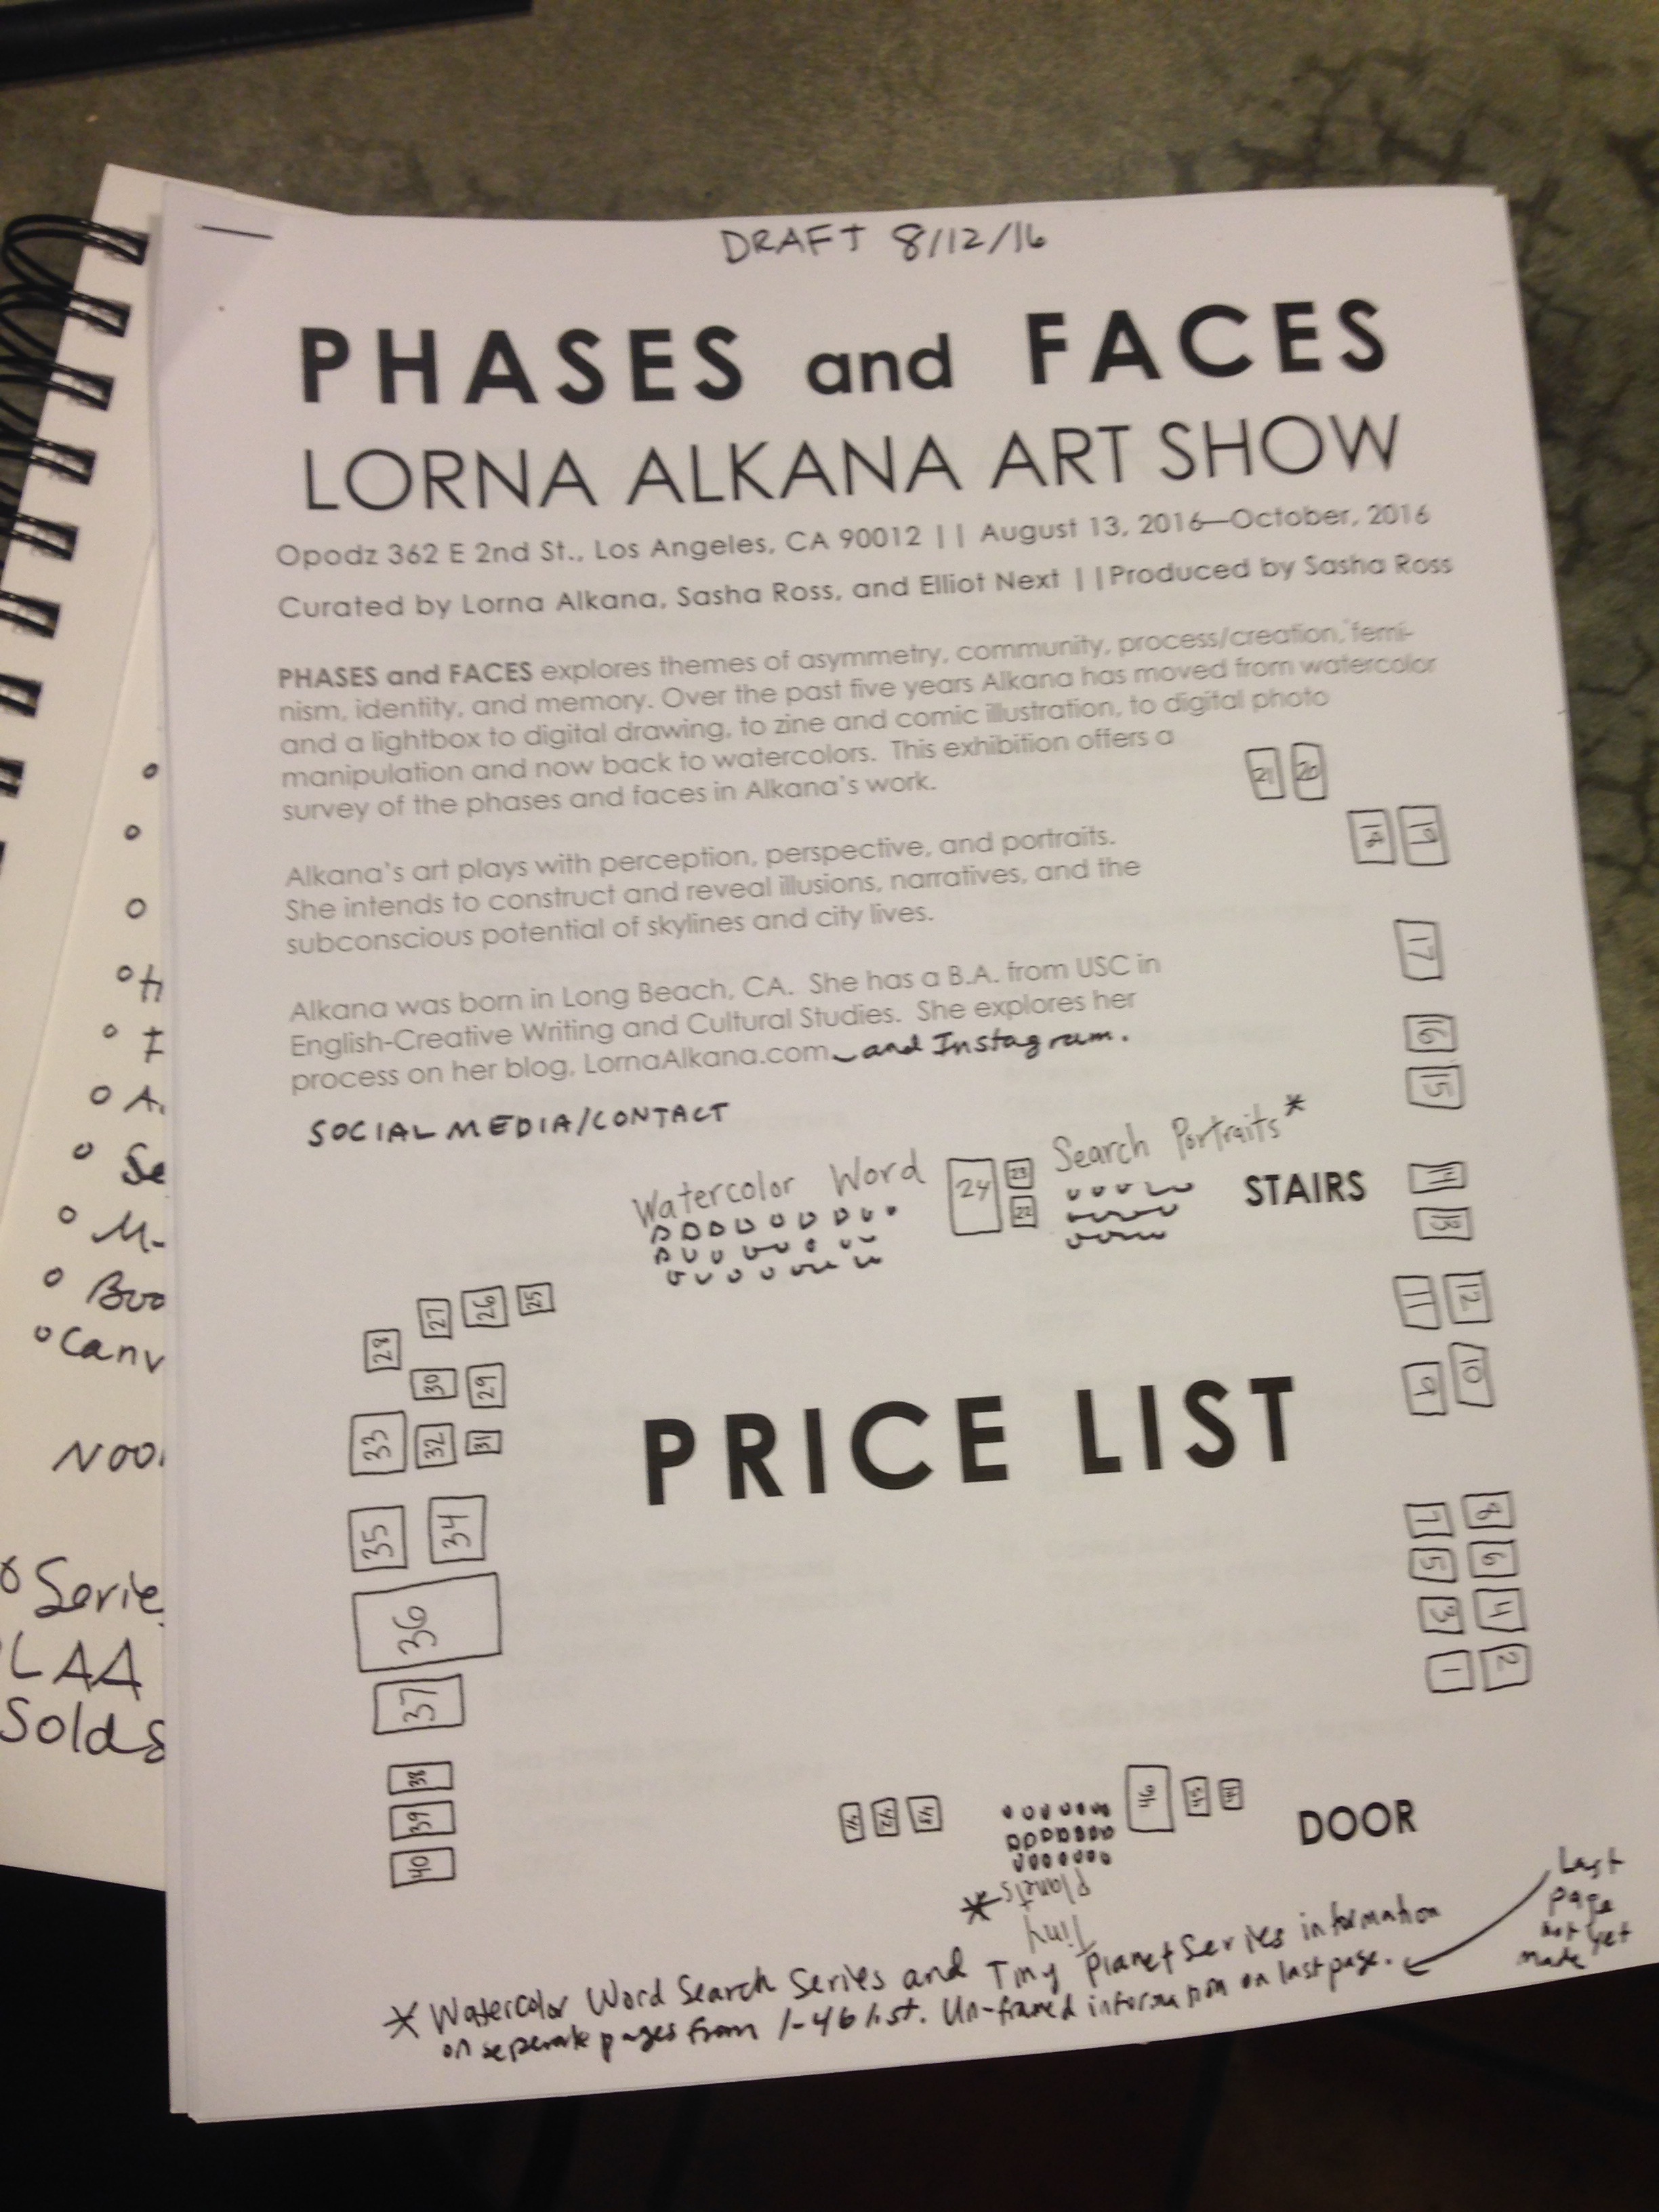 DRAFT 8/12/16
PHASES and FACES
LORNA ALKANA ART SHOW
Opodz 362 E 2nd St., Los Angeles, CA 90012 || August 13, 2016—October, 2016
Curated by Lorna Alkana, Sasha Ross, and Elliot Next ||Produced by Sasha Ross
PHASES and FACES explores themes of asymmetry, community, process/creation, femi-
nism, identity, and memory. Over the past five years Alkana has moved from watercolor
and a lightbox to digital drawing, to zine and comic illustration, to digital photo
manipulation and now back to watercolors. This exhibition offers a
survey of the phases and faces in Alkana's work.
21 20
18 19
Alkana's art plays with perception, perspective, and portraits.
She intends to construct and reveal illusions, narratives, and the
subconscious potential of skylines and city lives.
17
Alkana was born in Long Beach, CA. She has a B.A. from USC in
English-Creative Writing and Cultural Studies. She explores her
process on her blog, LornaAlkana.com and Instagram.
16
15
SOCIAL MEDIA/CONTACT
Watercolor Word
24 23
22
Search Portraits*
STAIRS
14
13
28 27 26 25
11 12
30 29
9 10
33 32 31
PRICE LIST
35 34
7 8
5 6
3 4
1 2
36
37
38
39
40
41 42 43
46 45 44
DOOR
* Tiny
Planets
* Watercolor Word Search Series and Tiny Planet Series information
on seperate pages from 1-46 list. Un-framed information on last page.
Last
page
not yet
made
Se
M-
Boo
Canv
NOO
Serie
LAA
Solds